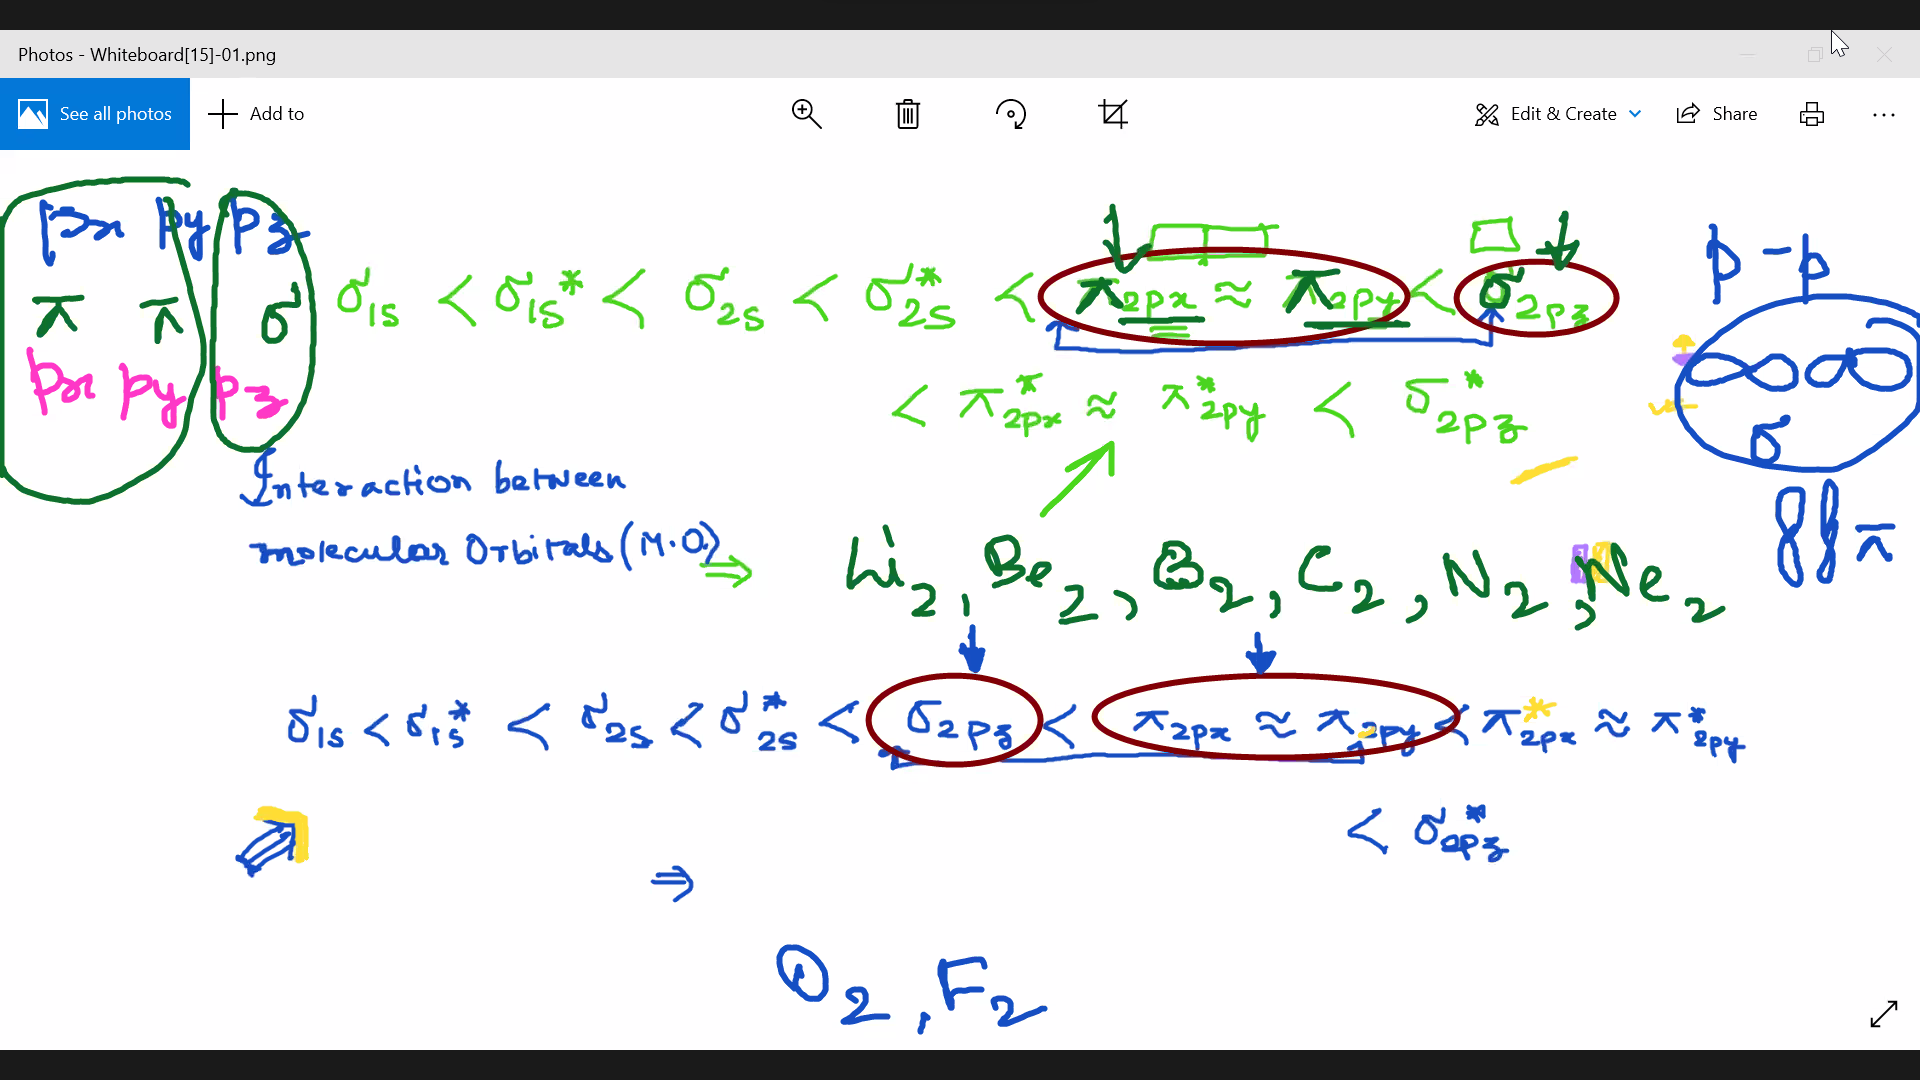 Photos - Whiteboard[15]-01.png
See all photos
Add to
Edit & Create
Share
px py pz
π π σ
px py pz
σ1s < σ1s* < σ2s < σ2s* < π2px ≈ π2py < σ2pz
< π*2px ≈ π*2py < σ*2pz
p - p
σ
π
Interaction between
molecular Orbitals (M.O.) ⇒
Li2, Be2, B2, C2, N2, Ne2
σ1s < σ1s* < σ2s < σ*2s < σ2pz < π2px ≈ π2py < π*2px ≈ π*2py
< σ*2pz
⇒
O2, F2